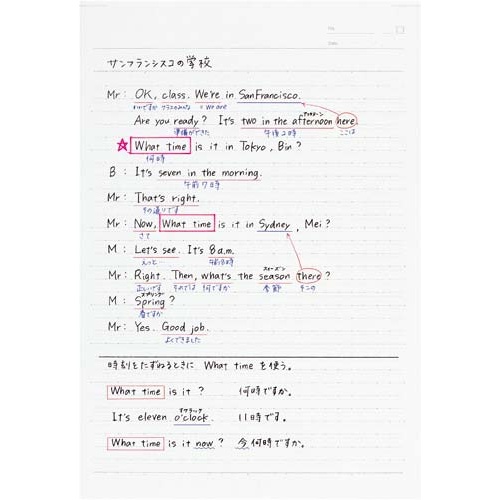 サンフランシスコの学校
Mr: OK, class. We're in San Francisco.
いいですか クラスのみんな = We are
アフタヌーン
Are you ready? It's two in the afternoon here.
準備ができた 午後2時 ここは
☆ What time is it in Tokyo, Bin?
何時
B: It's seven in the morning.
午前7時
Mr: That's right.
その通りです
Mr: Now, What time is it in Sydney, Mei?
さて
M: Let's see. It's 8 a.m.
えっと… 午前8時
スィーズン
Mr: Right. Then, what's the season there?
正しいです それでは 何ですか 季節 そこの
スプリング
M: Spring?
春ですか
Mr: Yes. Good job.
よくできました
時刻をたずねるときに What time を使う。
What time is it? 何時ですか。
オクラック
It's eleven o'clock. 11時です。
What time is it now? 今何時ですか。